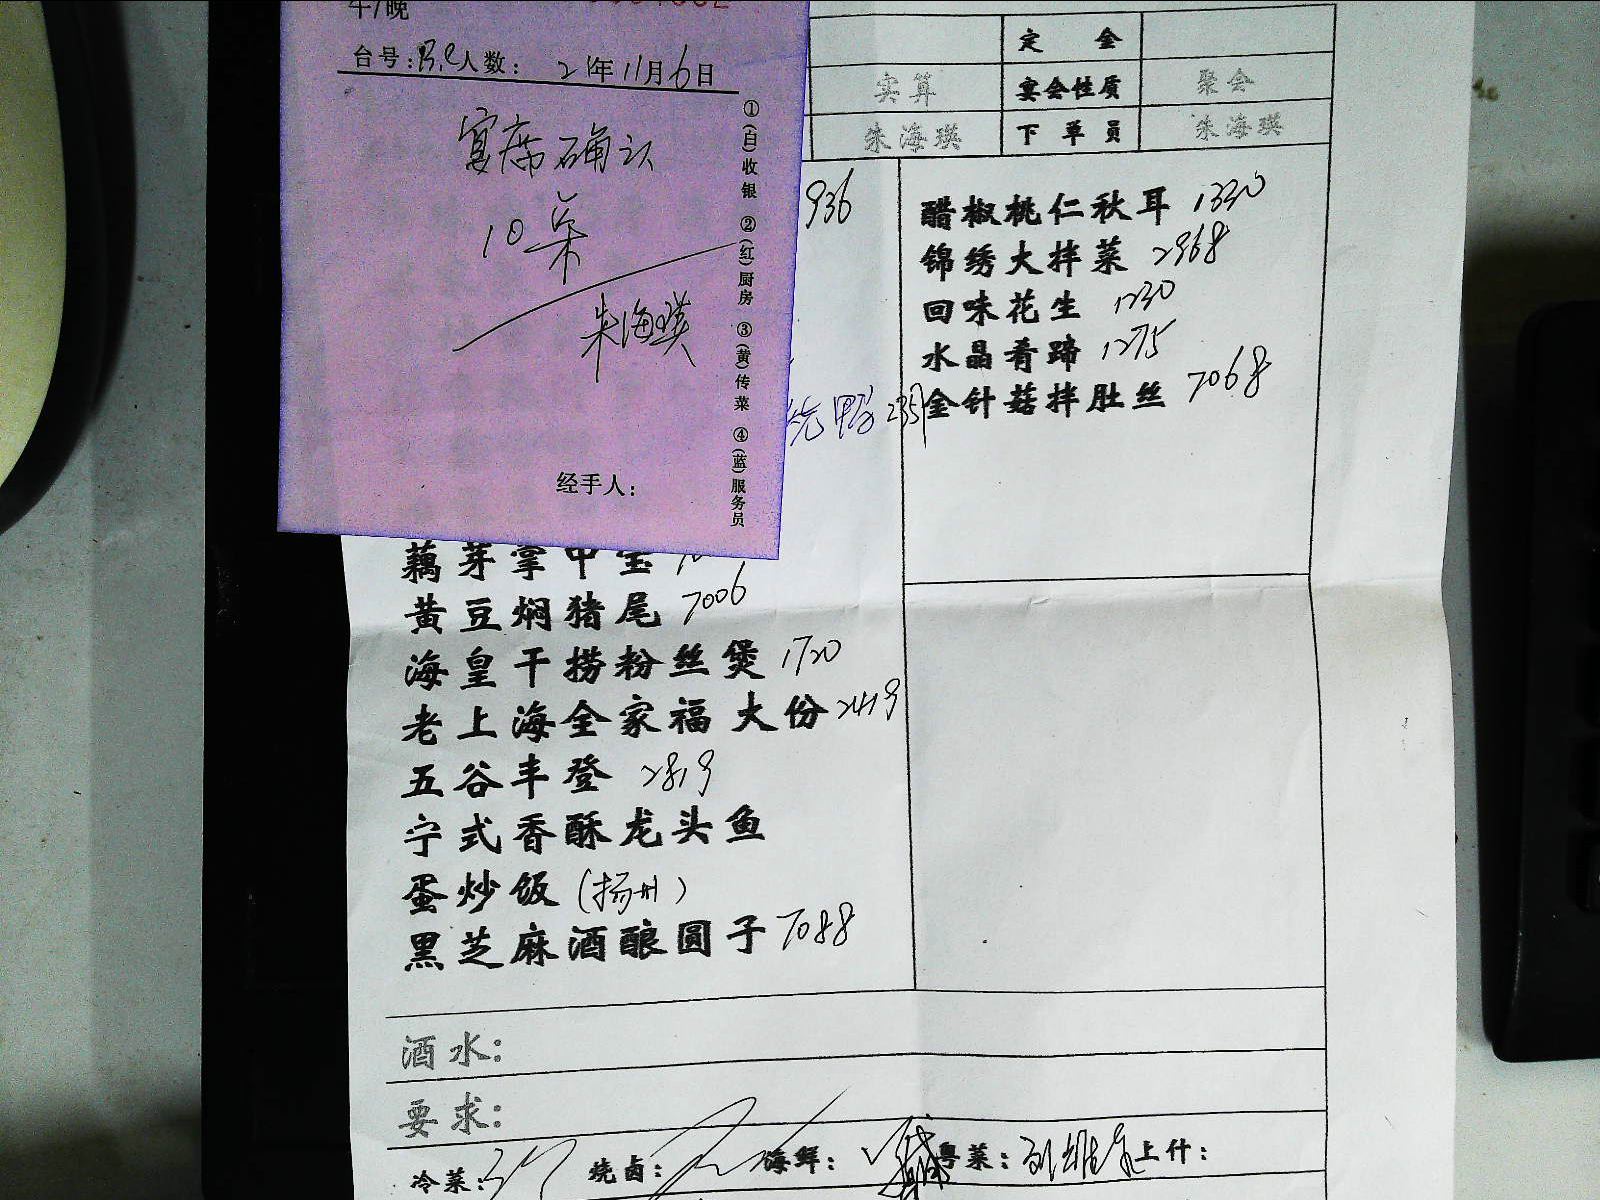 午/晚
台号: 人数: 21年11月6日
宴席确认
10桌
朱海瑛
①(白)收银 ②(红)厨房 ③(黄)传菜 ④(蓝)服务员
经手人:
定金
实算 宴会性质 聚会
朱海瑛 下单员 朱海瑛
936
醋椒桃仁秋耳 1330
锦绣大拌菜 2968
回味花生 1230
水晶肴蹄 1275
金针菇拌肚丝 7068
鸭 2351
藕芽掌中宝
黄豆焖猪尾 7006
海皇干捞粉丝煲 1720
老上海全家福 大份 2419
五谷丰登 2819
宁式香酥龙头鱼
蛋炒饭 (扬州)
黑芝麻酒酿圆子 7088
酒水:
要求:
冷菜: 烧卤: 海鲜: 粤菜: 上什: